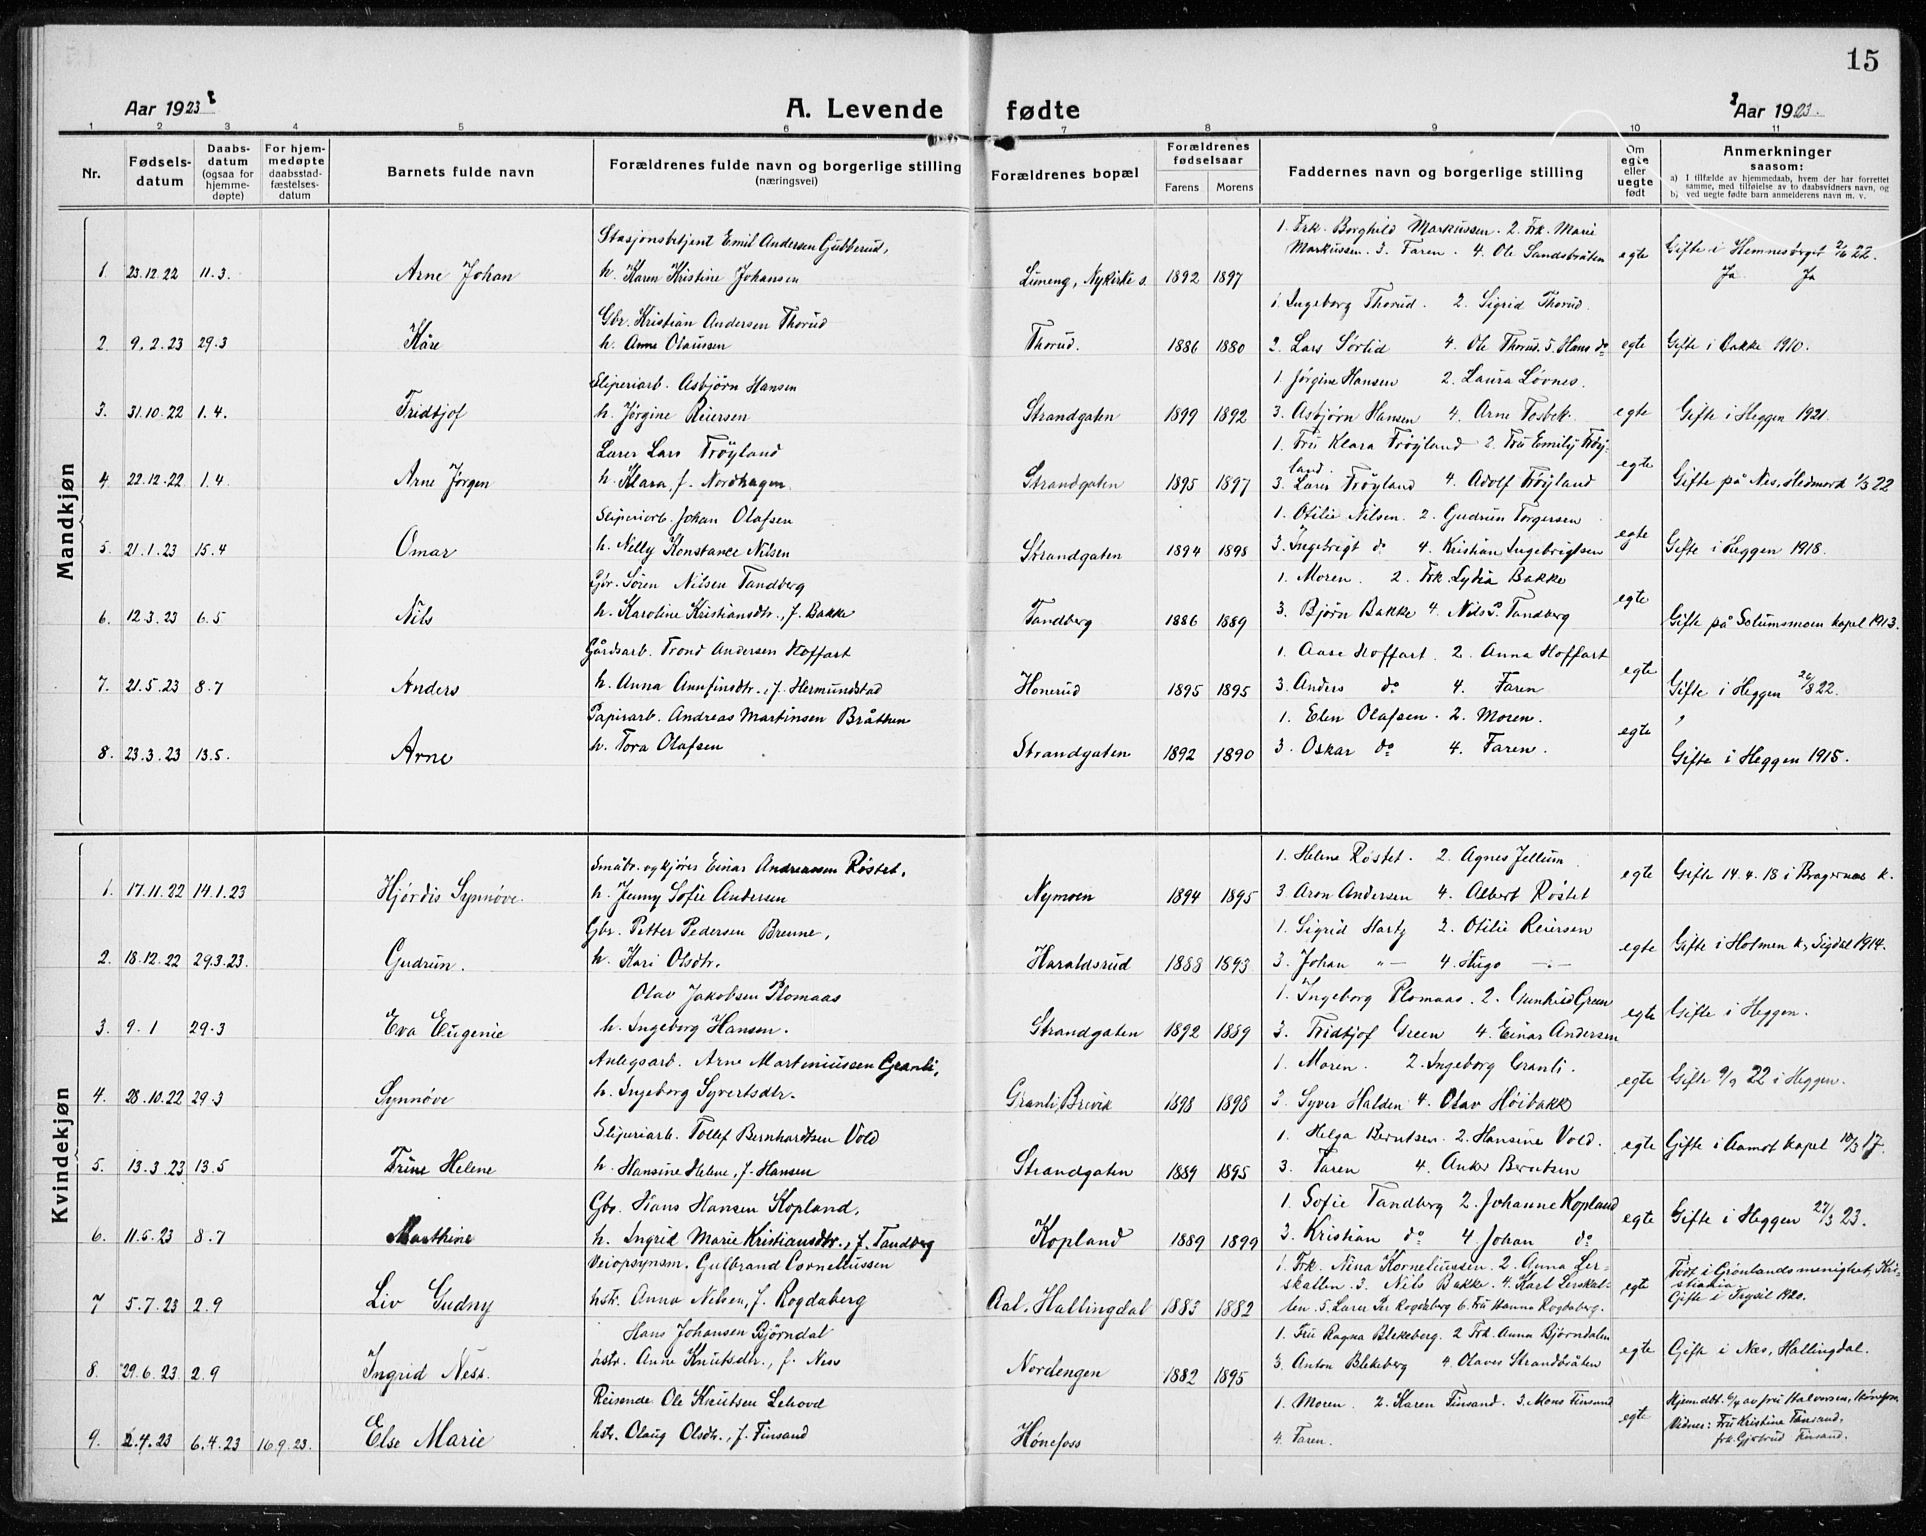 15
Aar 1923
A. Levende fødte
Aar 1923.
1 2 3 4 5 6 7 8 9 10 11
Nr.
Fødsels-
datum
Daabs-
datum
(ogsaa for
hjemme-
døpte)
For hjem-
medøpte
daabsstad-
fæstelses-
datum
Barnets fulde navn
Forældrenes fulde navn og borgerlige stilling
(næringsvei)
Forældrenes bopæl
Forældrenes
fødselsaar
Farens Morens
Faddernes navn og borgerlige stilling
Om
egte
eller
uegte
født
Anmerkninger
saasom:
a) I tilfælde av hjemmedaab, hvem der har forrettet
samme, med tilføielse av to daabsvidners navn, og
b) ved uegte fødte barn anmelderens navn m. v.
Mandkjøn
Stasjonsbetjent Emil Andersen Gubberud, 1. Frk. Borghild Markussen. 2. Frk. Marie
1. 23.12.22 11.3. Arne Johan h. Karen Kristine Johansen Limeng, Nykirke s. 1892 1897 Markussen. 3. Faren. 4. Ole Sandsbråten egte Gifte i Hemnesørget 2/6 22.
Ja Ja
Gbr. Kristian Andersen Thorud 1. Ingeborg Thorud. 2. Sigrid Thorud.
2. 9.2.23 29.3 Kåre h. Anne Olaussen Thorud. 1886 1880 2. Lars Sørlid 4. Ole Thorud. 5. Hans do egte Gifte i Bakke 1910.
Sliperiarb. Asbjørn Hansen 1. Jørgine Hansen 2. Laura Løvnes.
3. 31.10.22 1.4. Fridtjof h. Jørgine Reiersen Strandgaten 1899 1892 3. Asbjørn Hansen 4. Arne Fosbek. egte Gifte i Heggen 1921.
Lærer Lars Frøyland 1. Fru Klara Frøyland 2. Fru Emily Frøy-
land.
4 22.12.22 1.4 Arne Jørgen h. Klara, f. Nordhagen. Strandgaten 1895 1897 3. Lærer Frøyland 4. Adolf Frøyland egte Gifte på Nes, Hedmark 1/3 22
Sliperiarb. Johan Olafsen 1. Otilie Nilsen. 2. Gudrun Torgersen
5. 21.1.23 15.4 Omar h. Nelly Konstance Nilsen Strandgaten 1894 1898 3. Ingebrigt do 4. Kristian Ingebrigtsen egte Gifte i Heggen 1918.
Gbr. Søren Nilsen Tandberg 1. Moren. 2. Frk. Lydia Bakke
6. 12.3.23 6.5 Nils h. Karoline Kristiansdtr., f. Bakke Tandberg 1886 1889 3. Bjørn Bakke 4. Nils P. Tandberg egte Gifte på Solumsmoen kapel 1913.
Gårdsarb. Trond Andersen Hoffart 1. Aase Hoffart. 2. Anna Hoffart
7. 21.5.23 8.7 Anders h. Anna Arnfinsdtr., f. Hermundstad Honerud 1895 1895 3. Anders do 4. Faren egte Gifte i Heggen 20/8 22.
Papirarb. Andreas Martinsen Bråtten 1. Elen Olafsen. 2. Moren.
8. 23.3.23 13.5. Arne h. Tora Olafsen Strandgaten 1892 1890 3. Oskar do 4. Faren. egte Gifte i Heggen 1915.
Kvindekjøn
Småbr. og kjører Einar Andreassen Røstet. 1. Helene Røstet. 2. Agnes Jellum
1. 17.11.22 14.1.23 Hjørdis Synnøve. h. Jenny Sofie Andersen Nymoen 1894 1895 3. Aron Andersen 4. Albert Røstet egte Gifte 14.4.18 i Bragernæs k.
Gbr. Petter Pedersen Brenne, 1. Sigrid Hartz 2. Otilie Reiersen
2. 18.12.22 29.3.23. Gudrun. h. Kari Olsdtr. Haraldsrud 1888 1893 3. Johan " 4. Hugo - egte Gifte i Holmen k, Sigdal 1914.
Olav Jakobsen Plomaas 1. Ingeborg Plomaas. 2. Gunhild Green
3. 9.1 29.3 Eva Eugenie h. Ingeborg Hansen. Strandgaten 1892 1889 3. Fridtjof Green 4. Einar Andersen egte Gifte i Heggen.
Anlegsarb. Arne Martiniussen Granli, 1. Moren. 2. Ingeborg Granli.
4. 28.10.22 29.3 Synnøve h. Ingeborg Syvertsdtr. Granli, Brevik 1898 1898 3. Syver Halden 4. Olav Høibakk egte Gifte 9/9 22 i Heggen.
Sliperiarb. Tollef Bernhardtsen Vold 1. Helga Berntsen. 2. Hansine Vold.
5. 13.3.23 13.5 Trine Helene h. Hansine Helene, f. Hansen Strandgaten 1889 1895 3. Faren 4. Anker Berntsen egte Gifte i Aamot kapel 10/3 17.
Gbr. Hans Hansen Kopland, 1. Sofie Tandberg 2. Johanne Kopland
6. 11.5.23 8.7 Marthine h. Ingrid Marie Kristiansdtr., f. Tandberg Kopland 1889 1899 3. Kristian do 4 Johan do egte Gifte i Heggen 27/3 23.
Veiopsynsm. Gulbrand Corneliussen 1. Frk. Nina Korneliussen. 2. Anna Ler-
skallen 3. Nils Bakke. 4. Karl Lerskal-
7 5.7.23 2.9 Liv Gudny hstr. Anna Nilsen, f. Rogdaberg Aal, Hallingdal 1883 1882 len. 5. Lærer Per Rogdaberg 6. Fru Hanna Rogdaberg. egte Født i Grønlands menighet, Kri-
stiania.
Gifte i Trysil 1920.
Hans Johansen Bjørndal 1. Fru Ragna Blekeberg. 2 Frk. Anna Bjørndalen
8. 29.6.23 2.9 Ingrid Ness. hstr. Anne Knutsdtr., f. Ness Nordengen 1882 1895 3. Anton Blekeberg 4. Olaves Strandbråten egte Gifte i Næs, Hallingdal.
Reisende Ole Knutsen Lehovd 1. Moren. 2. Karen Finsand. 3. Mons Finsand
9. 2.4.23 6.4.23 16.9.23. Else Marie hstr. Olaug Olsdtr., f. Finsand Hønefoss 4. Faren. egte Hjemdbt. 6/4 av fru Halvorsen, Hønefoss.
Vidner: Fru Kristine Finsand,
frk. Gjertrud Finsand.